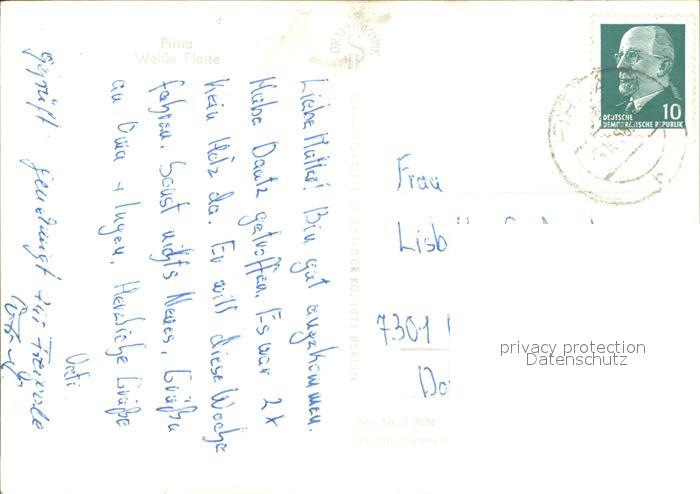 Pirna
Weiße Flotte
Liebe Mutter! Bin gut angekommen.
Habe Dautz getroffen. Es war 2x
kein Holz da. Er will diese Woche
fahren. Sonst nichts Neues, Grüße
an Oma + Ingen. Herzliche Grüße
geprüft
GRAPHOKOPIE
SANDER KG, 1071 BERLIN
Best.-Nr. S 2636
Frau
Lisb
7301
Do
DEUTSCHE
DEMOKRATISCHE REPUBLIK
10
privacy protection
Datenschutz